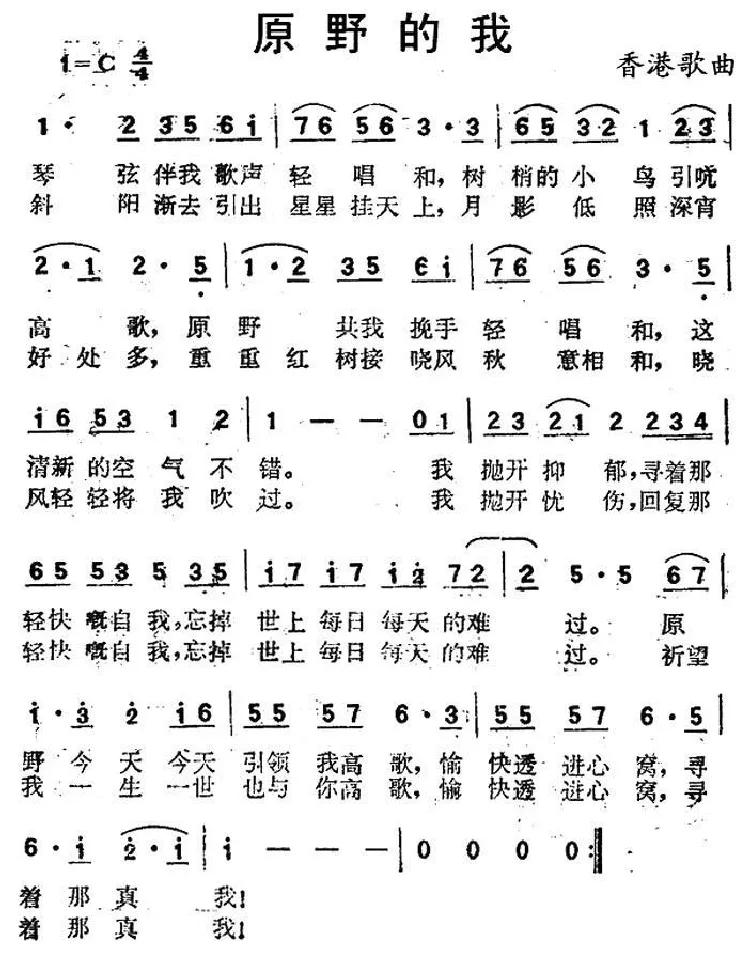 原野的我
1=C 4/4
香港歌曲
1· 2 35 6i | 76 56 3·3 | 65 32 1 23 |
琴 弦伴我歌声轻唱和,树梢的小鸟引吭
斜 阳渐去引出星星挂天上,月影低照深宵
2·1 2·5 | 1·2 35 6i | 76 56 3·5 |
高 歌,原野 共我挽手轻唱和,这
好处多,重重红树接晓风秋意相和,晓
i6 53 1 2 | 1 — — 01 | 23 21 2 234 |
清新的空气不错。 我抛开抑郁,寻着那
风轻轻将我吹过。 我抛开忧伤,回复那
65 53 5 35 | i7 i7 i2 72 | 2 5·5 67 |
轻快嘅自我,忘掉世上每日每天的难过。原
轻快嘅自我,忘掉世上每日每天的难过。祈望
i·3 2 i6 | 55 57 6·3 | 55 57 6·5 |
野今天今天引领我高歌,愉快透进心窝,寻
我一生一世也与你高歌,愉快透进心窝,寻
6·i 2·i | i — — — | 0 0 0 0 :‖
着那真我!
着那真我!